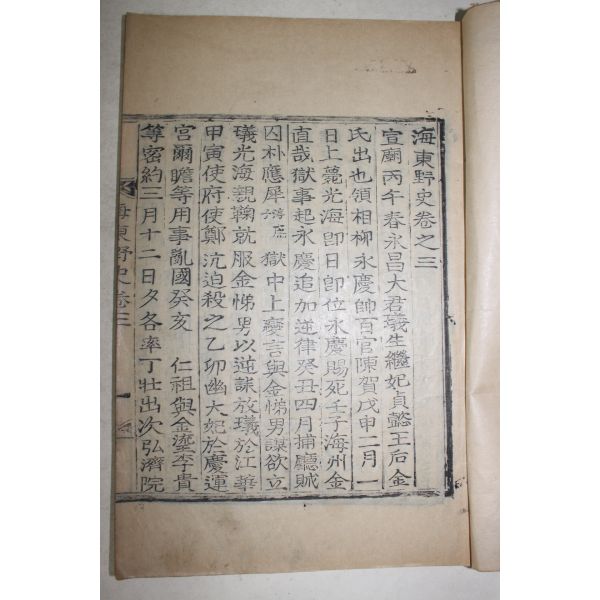 海東野史卷之三
宣廟丙午春永昌大君㼁生繼妃貞懿王后金
氏出也領相柳永慶帥百官陳賀戊申二月一
日上薨光海卽日卽位永慶賜死壬子海州金
直哉獄事起永慶追加逆律癸丑四月捕廳賊
囚朴應犀 獄中上變言與金悌男謀欲立
㼁光海親鞠就服金悌男以逆誅放㼁於江華
甲寅使府使鄭沆迫殺之乙卯幽大妃於慶運
宮爾瞻等用事亂國癸亥 仁祖與金瑬李貴
等密約三月十二日夕各率丁壯出次弘濟院
海東野史卷三 一